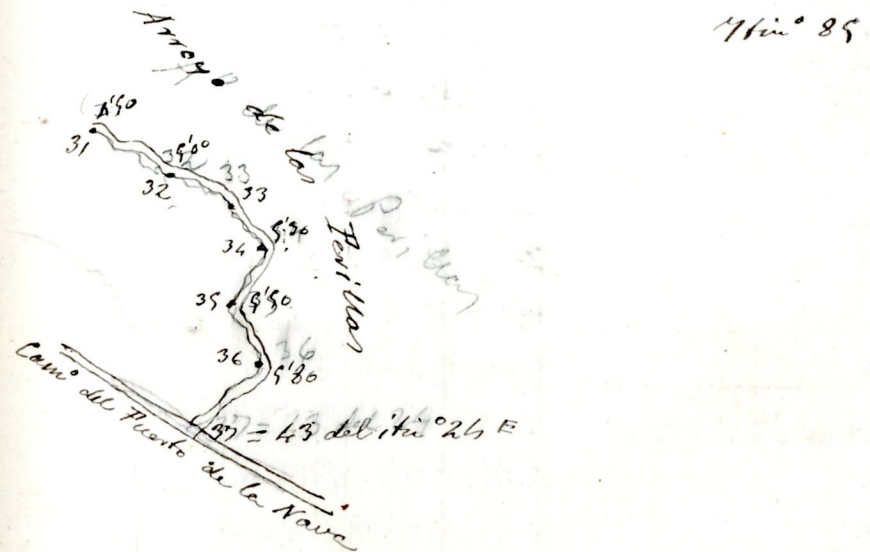 Ytinº 85
Arroyo de las Perillas
31
32
5'00
33
33
34
5'30
35 5'50
36
36
5'80
37 = 43 del itinº 24 E
Camº del Puerto de la Nava